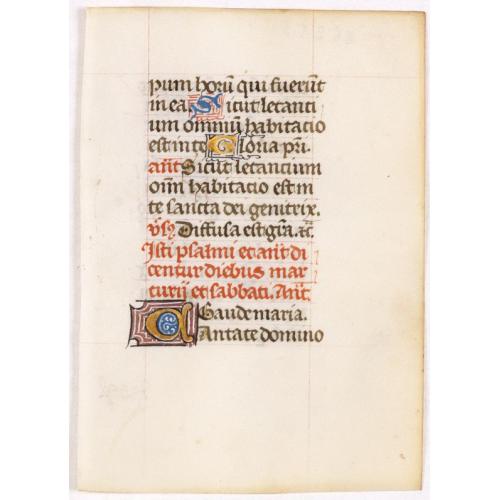 pum horū qui fuerūt
in ea. Sicut letanti
um omniū habitatio
est in te Gloria pri.
añt Sicut letantium
oīm habitatio est in
te sancta dei genitrix.
Diffusa est gr̄a. &c̄.
Isti psalmi et ant di
centur diebus mar
turij et sabbati. Añt.
Gaude maria.
Cantate domino